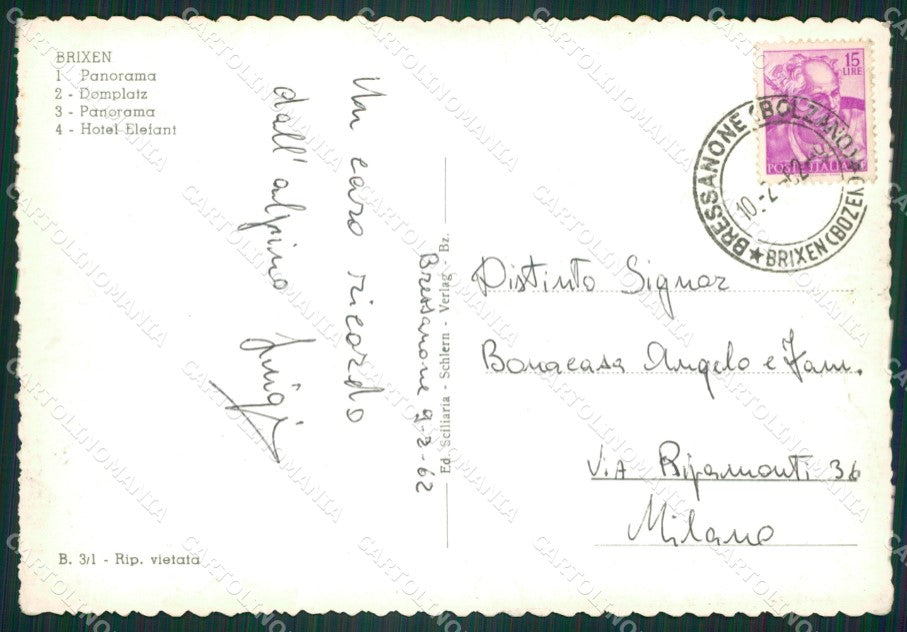 BRIXEN
1 - Panorama
2 - Domplatz
3 - Panorama
4 - Hotel Elefant
Un caro ricordo
dall'alpino Luigi
Bressanone 9-2-62
Ed. Sciliaria - Schlern - Verlag - Bz.
15
LIRE
POSTE ITALIANE
BRESSANONE (BOLZANO)
10.-2
BRIXEN (BOZEN)
Distinto Signor
Bonacasa Angelo e Fam.
Via Ripamonti 36
Milano
B. 3/1 - Rip. vietata
CARTOLINOMANIA